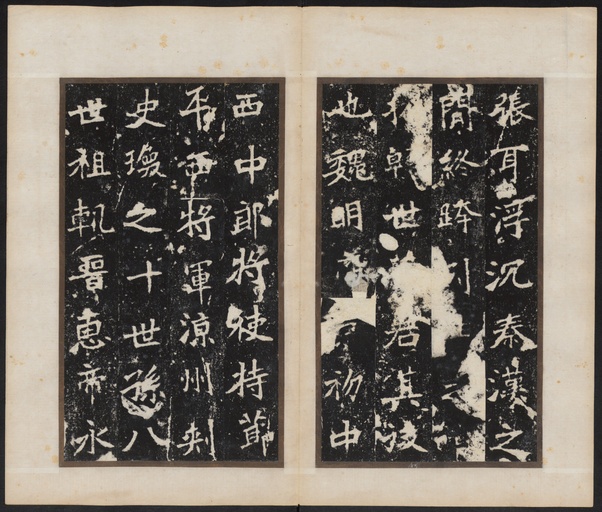 張耳浮沉秦漢之
閒終跨列之
軌世君其後
也魏明初中
西中郎將使持節
平西將軍涼州刺
史瓊之十世孫八
世祖軌晉惠帝永